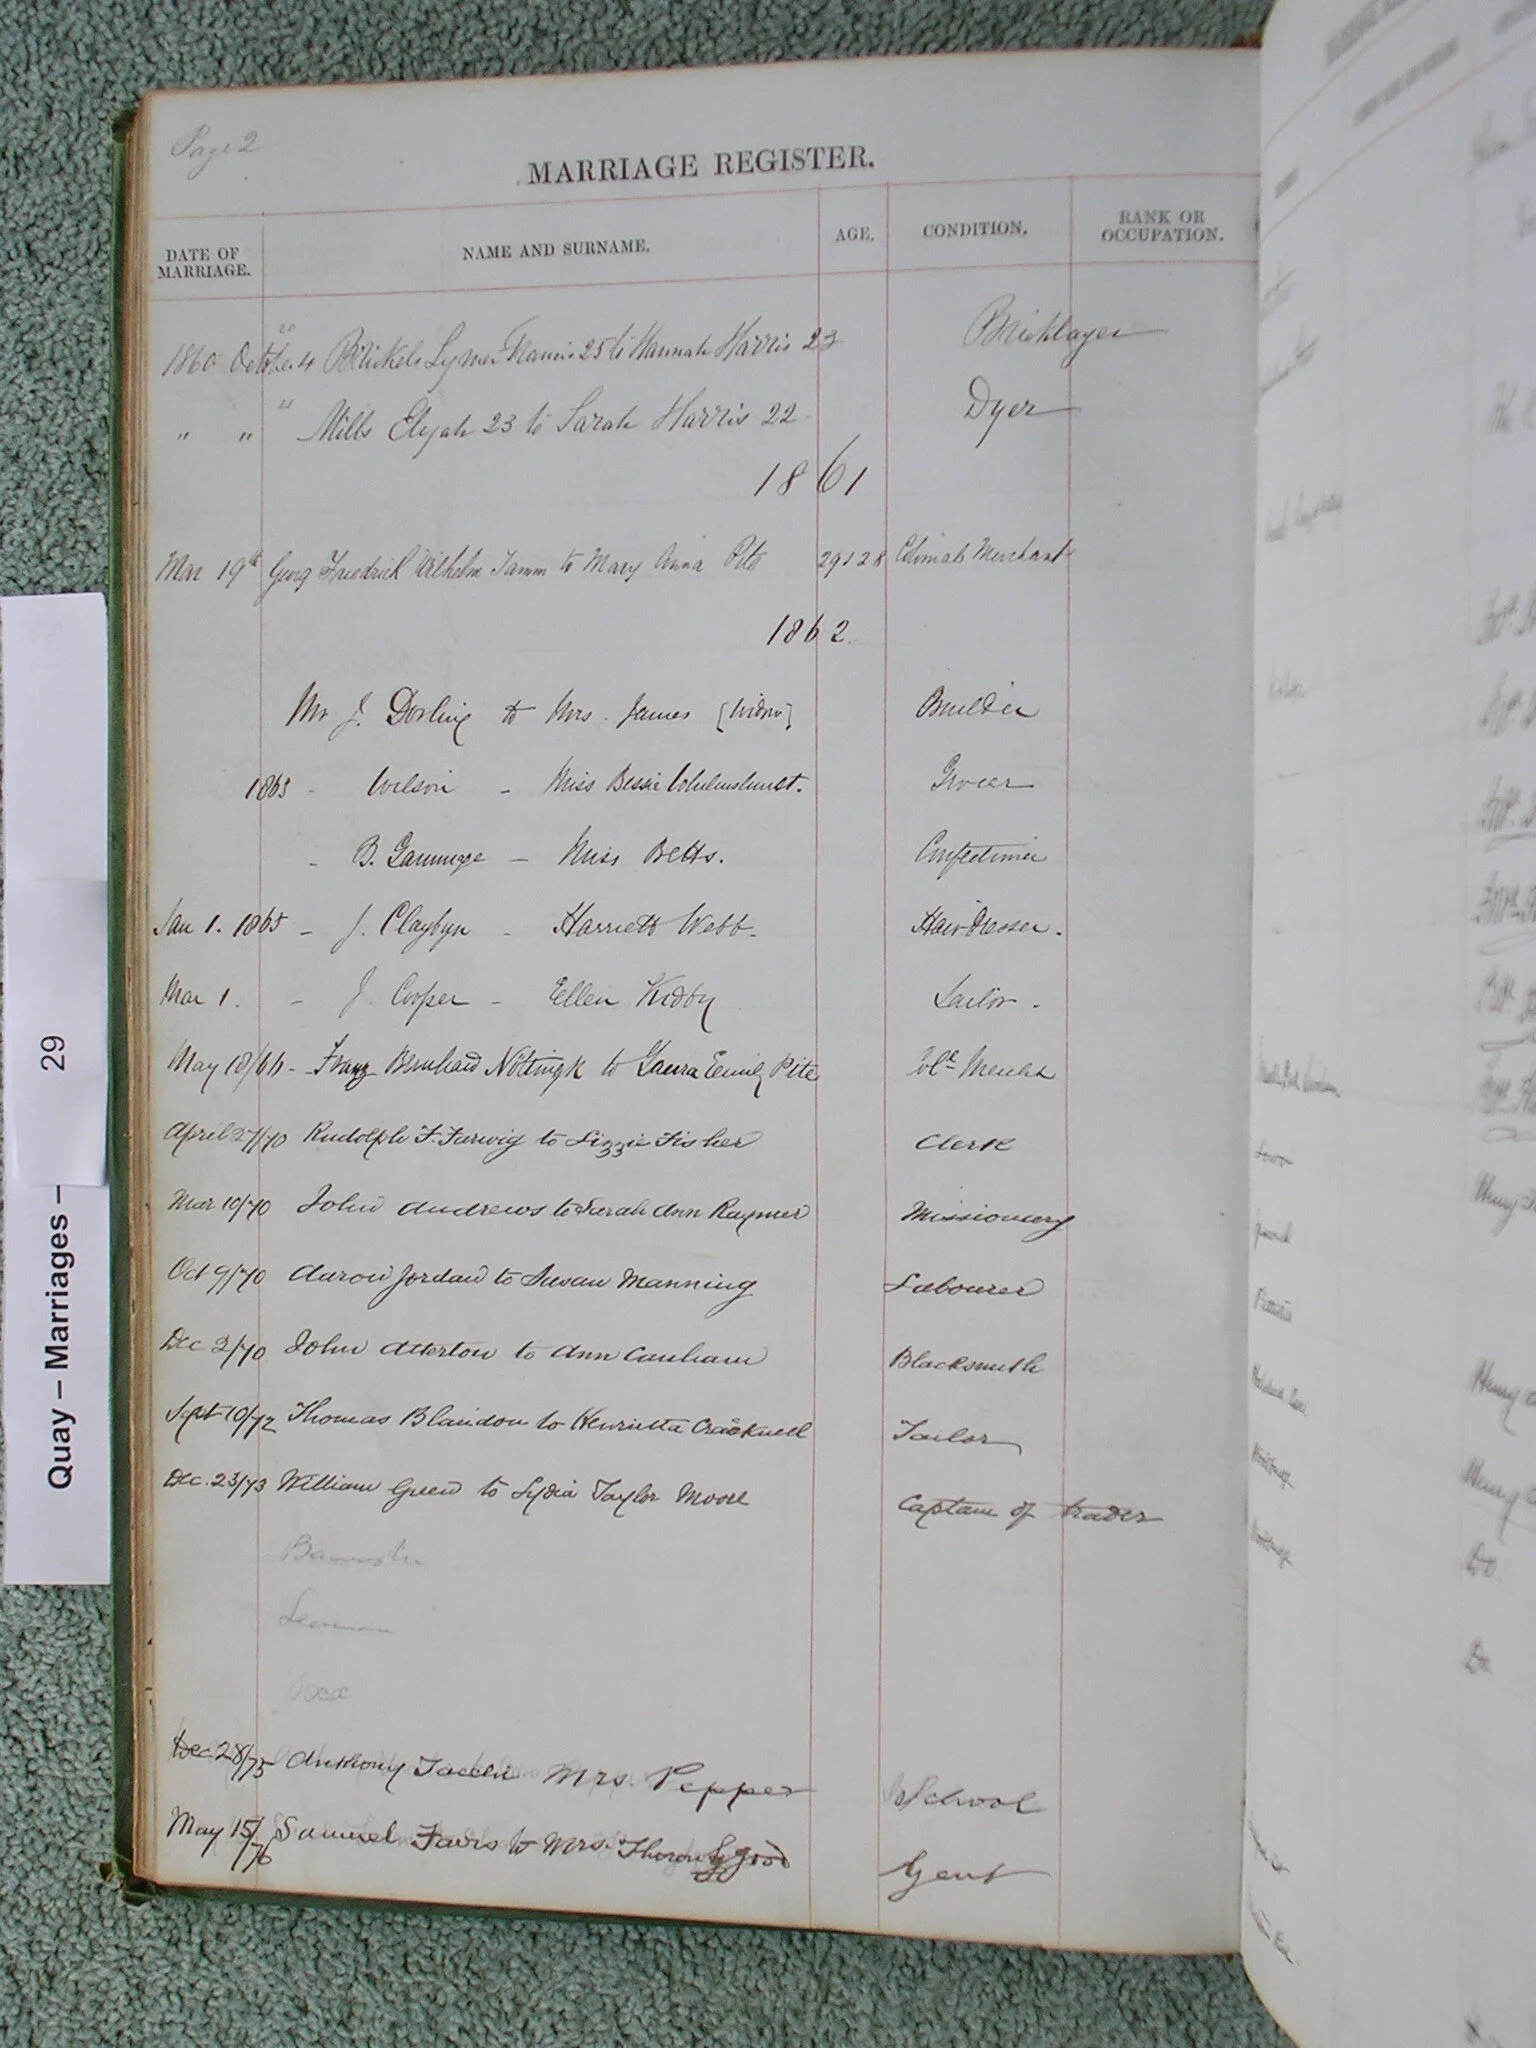 Page 2
MARRIAGE REGISTER.
DATE OF MARRIAGE. NAME AND SURNAME. AGE. CONDITION. RANK OR OCCUPATION.
1860 October 4 Lymer Francis 25 to Hannah Harris 23 Bricklayer
" " Mills Elijah 23 to Sarah Harris 22 Dyer
1861
Mar 19th Georg Friedrick Wilhelm Tamm to Mary Anna Pite 29 & 28 Colonial Merchant
1862.
Mr J. Dorling to Mrs. James [Widow] Builder
1863 - Wilson - Miss Bessie Grocer
- B. Gammage - Miss Betts. Confectioner
Jan 1. 1865 - J. Claybyn - Harriett Webb - Hair dresser.
Mar 1. - J. Cooper - Ellen Kidby Sailor -
May 18/66 - Franz Bernhard Nöltingk to Laura Emily Pite Col. Mercht
April 27/70 Rudolph F. Furwig to Lizzie Fisher Clerk
Mar 10/70 John Andrews to Sarah Ann Raymer Missionary
Oct 9/70 Aaron Jordan to Susan Manning Labourer
Dec 2/70 John Atterton to Ann Canham Blacksmith
Sept 10/72 Thomas Blaindon to Henrietta Cracknell Tailor
Dec. 23/73 William Green to Lydia Taylor Moore Captain of trader
Dec 28/75 Anthony Mrs. Pepper School
May 15/76 Samuel to Mrs. Thorowgood Gent
Quay – Marriages – 29